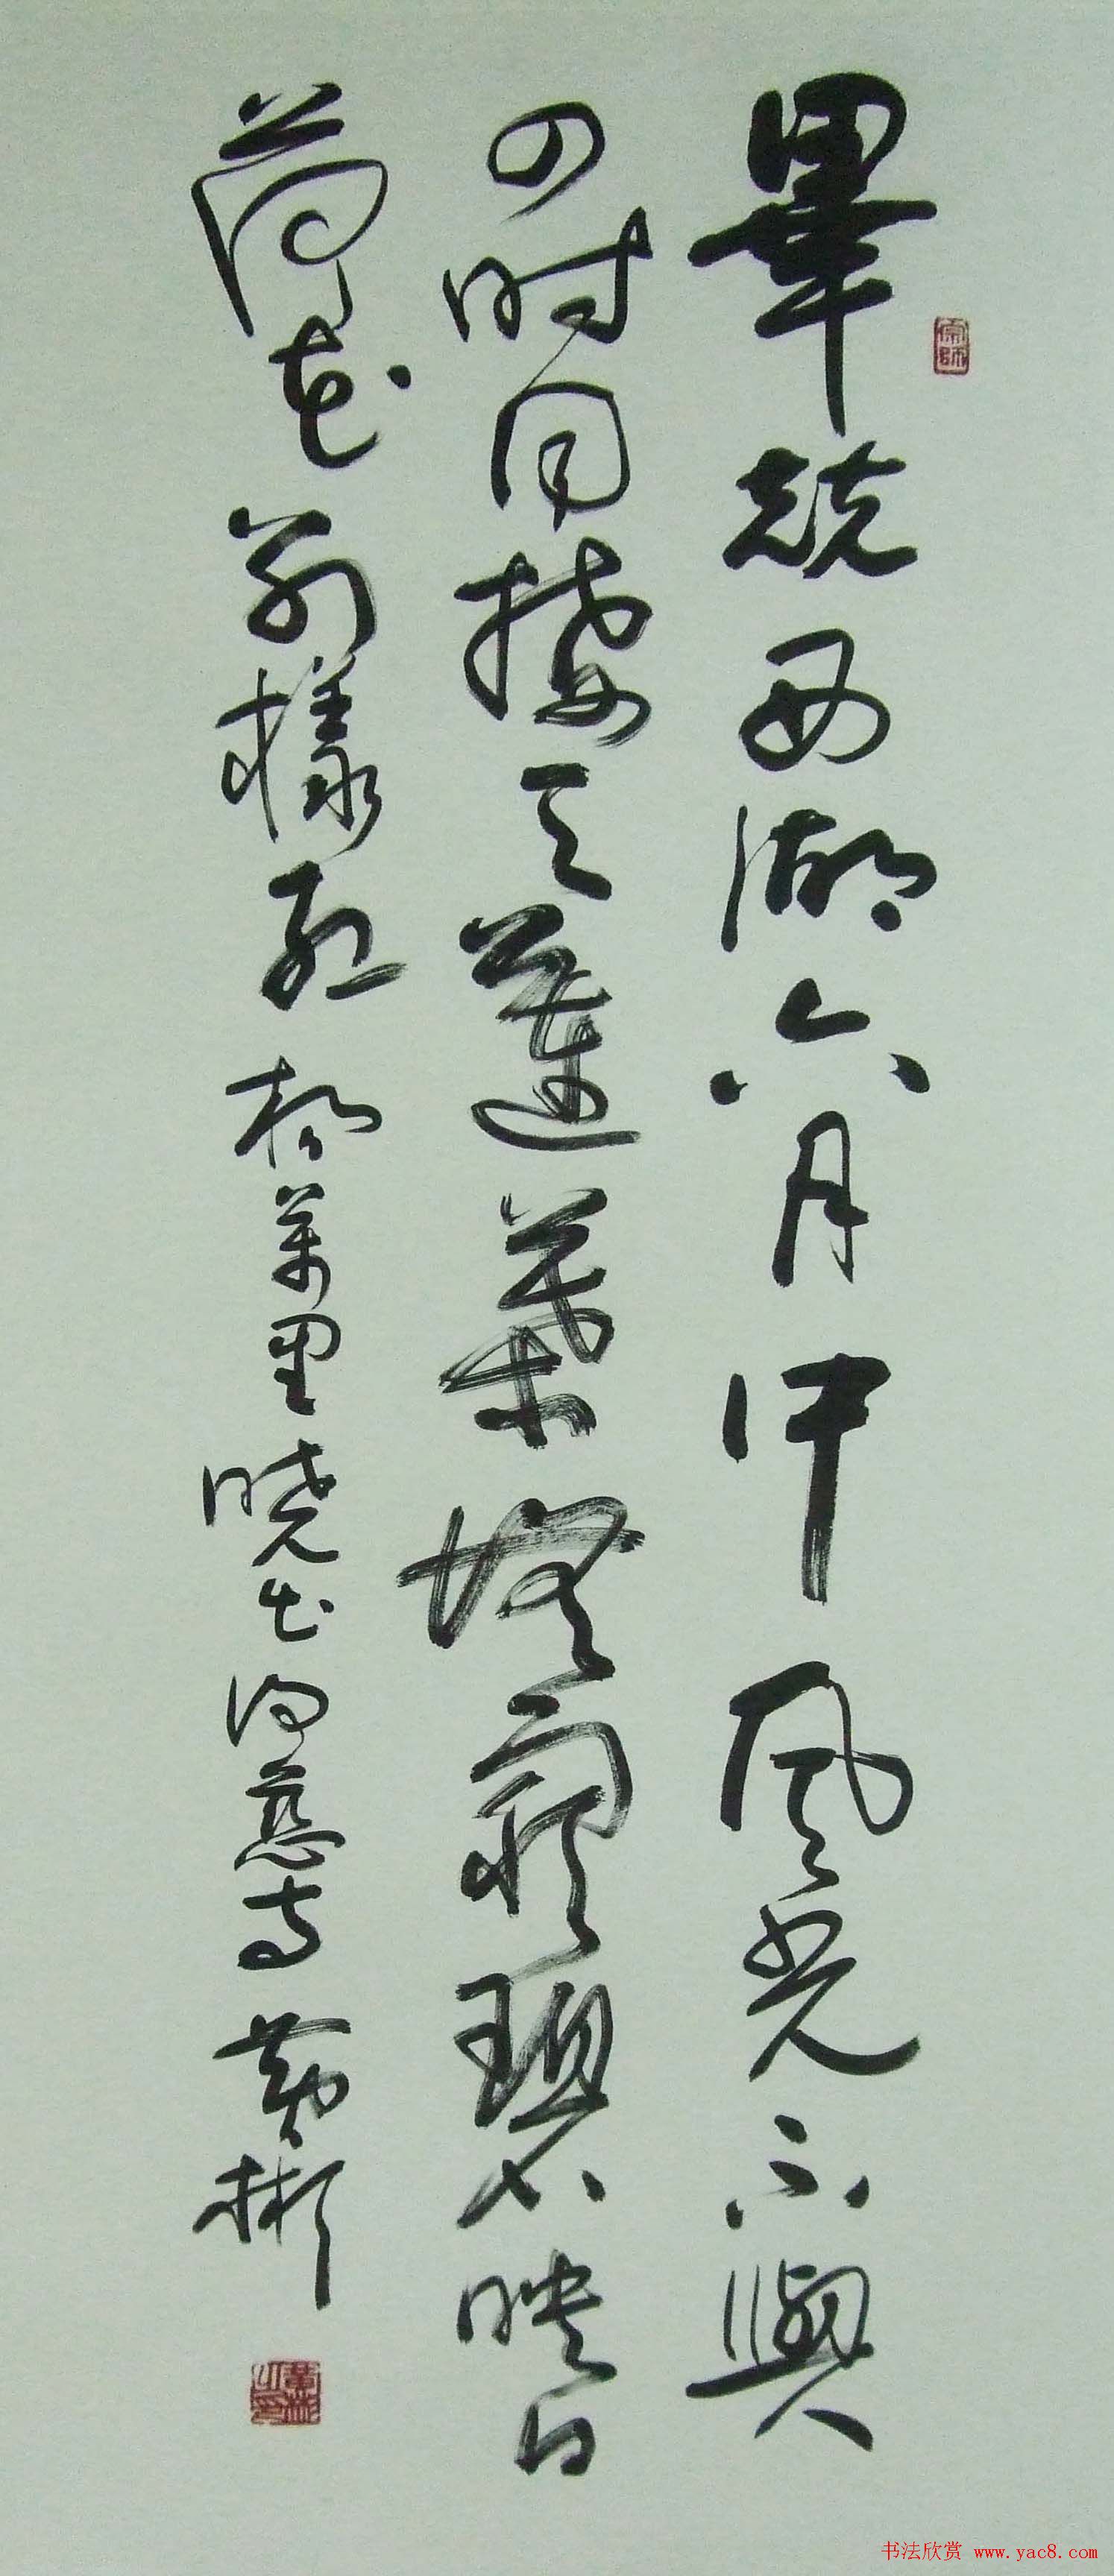 畢竟西湖六月中風光不與
四時同接天蓮葉無窮碧映日
荷花別樣紅 楊萬里曉出淨慈寺 黃彬
崇師
黃彬之印
书法欣赏 www.yac8.com